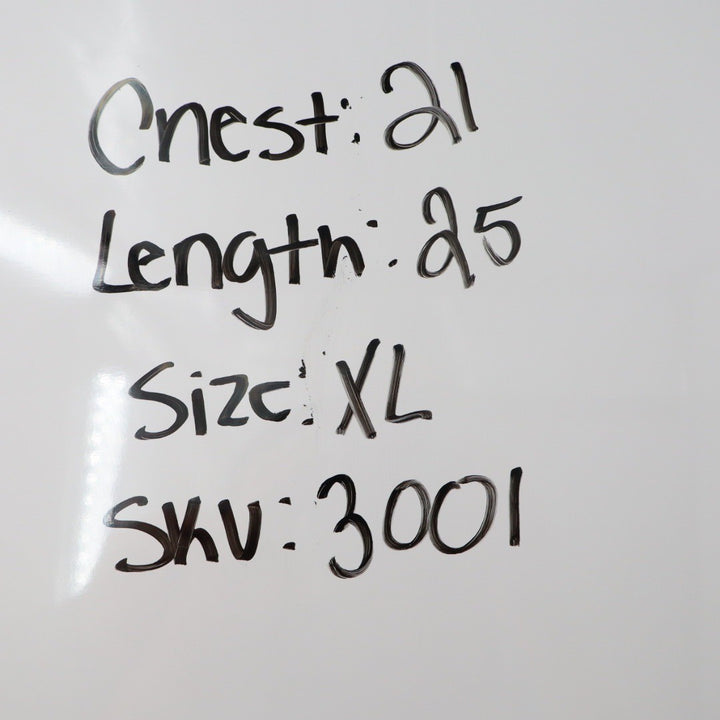 Chest: 21
Length: 25
Size: XL
SKU: 3001